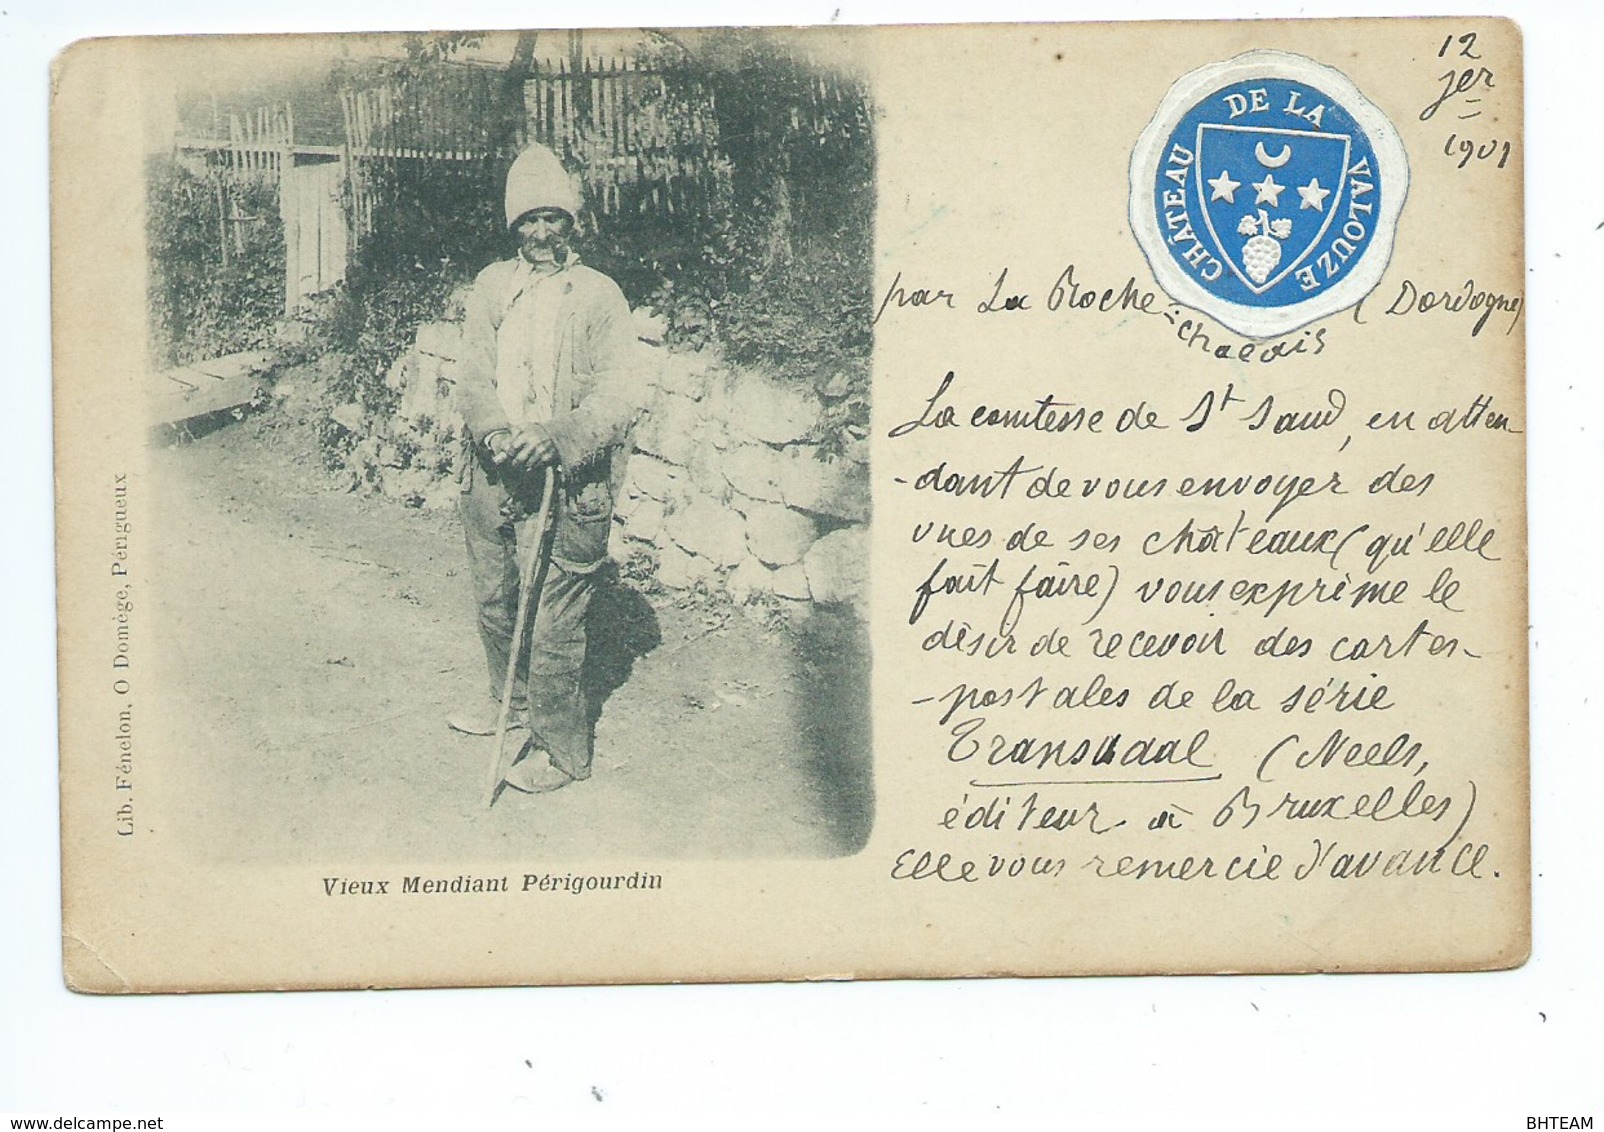 12
jer
1901
CHÂTEAU DE LA VALOUZE
par La Roche-
chalais
(Dordogne)
La comtesse de St Saud, en atten-
-dant de vous envoyer des
vues de ses châteaux (qu'elle
fait faire) vous exprime le
désir de recevoir des cartes-
-postales de la série
Transvaal (Neels,
éditeur à Bruxelles)
Elle vous remercie d'avance.
Vieux Mendiant Périgourdin
Lib. Fénelon, O Domège, Périgueux
delcampe.net
BHTEAM